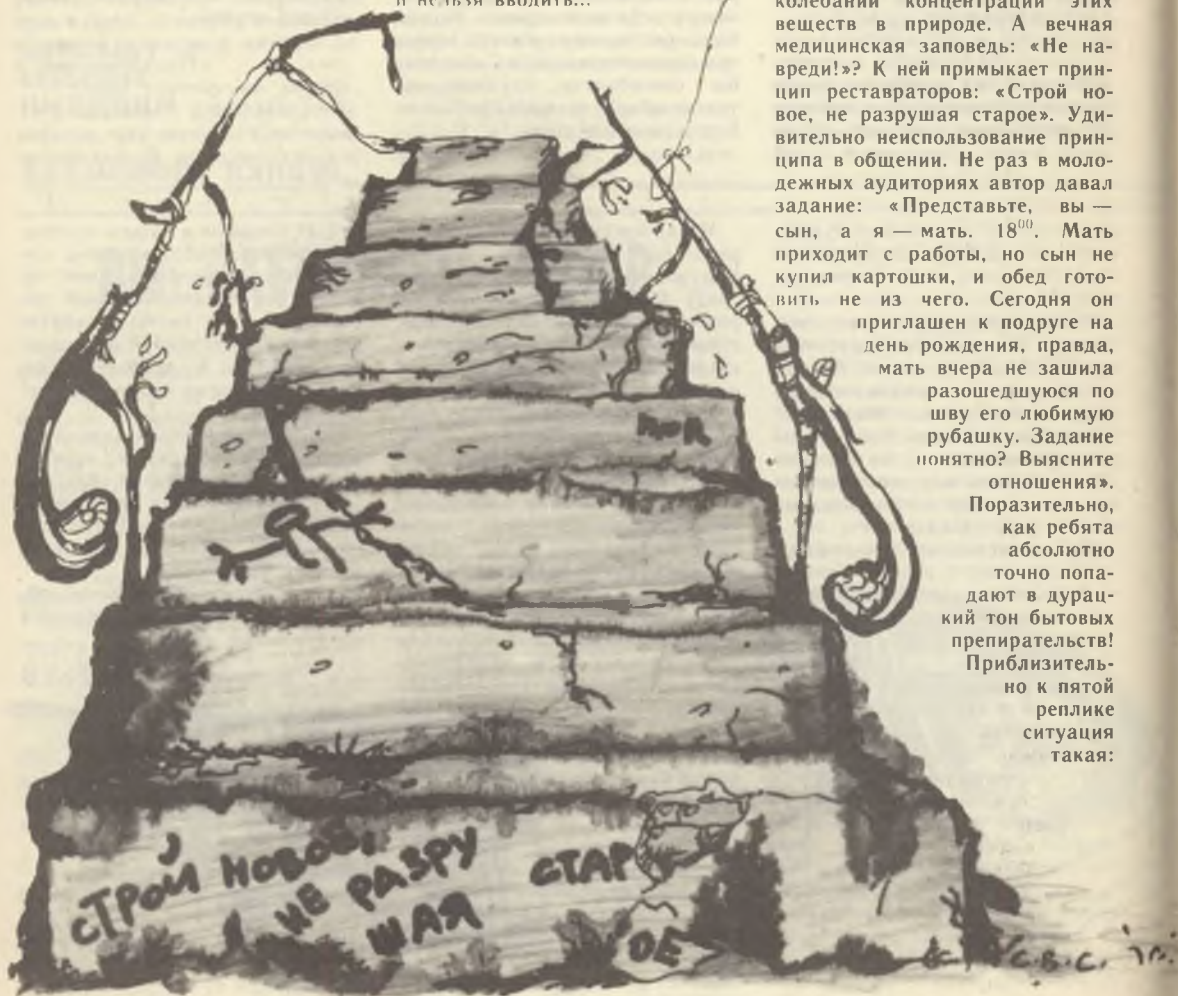 и нельзя вводить...
колебаний концентрации этих
веществ в природе. А вечная
медицинская заповедь: «Не на-
вреди!»? К ней примыкает прин-
цип реставраторов: «Строй но-
вое, не разрушая старое». Уди-
вительно неиспользование прин-
ципа в общении. Не раз в моло-
дежных аудиториях автор давал
задание: «Представьте, вы —
сын, а я — мать. 18⁰⁰. Мать
приходит с работы, но сын не
купил картошки, и обед гото-
вить не из чего. Сегодня он
приглашен к подруге на
день рождения, правда,
мать вчера не зашила
разошедшуюся по
шву его любимую
рубашку. Задание
понятно? Выясните
отношения».
Поразительно,
как ребята
абсолютно
точно попа-
дают в дурац-
кий тон бытовых
препирательств!
Приблизитель-
но к пятой
реплике
ситуация
такая:
СТРОЙ НОВОЕ,
НЕ РАЗРУ
ШАЯ
СТАР
ОЕ
С.В.С.